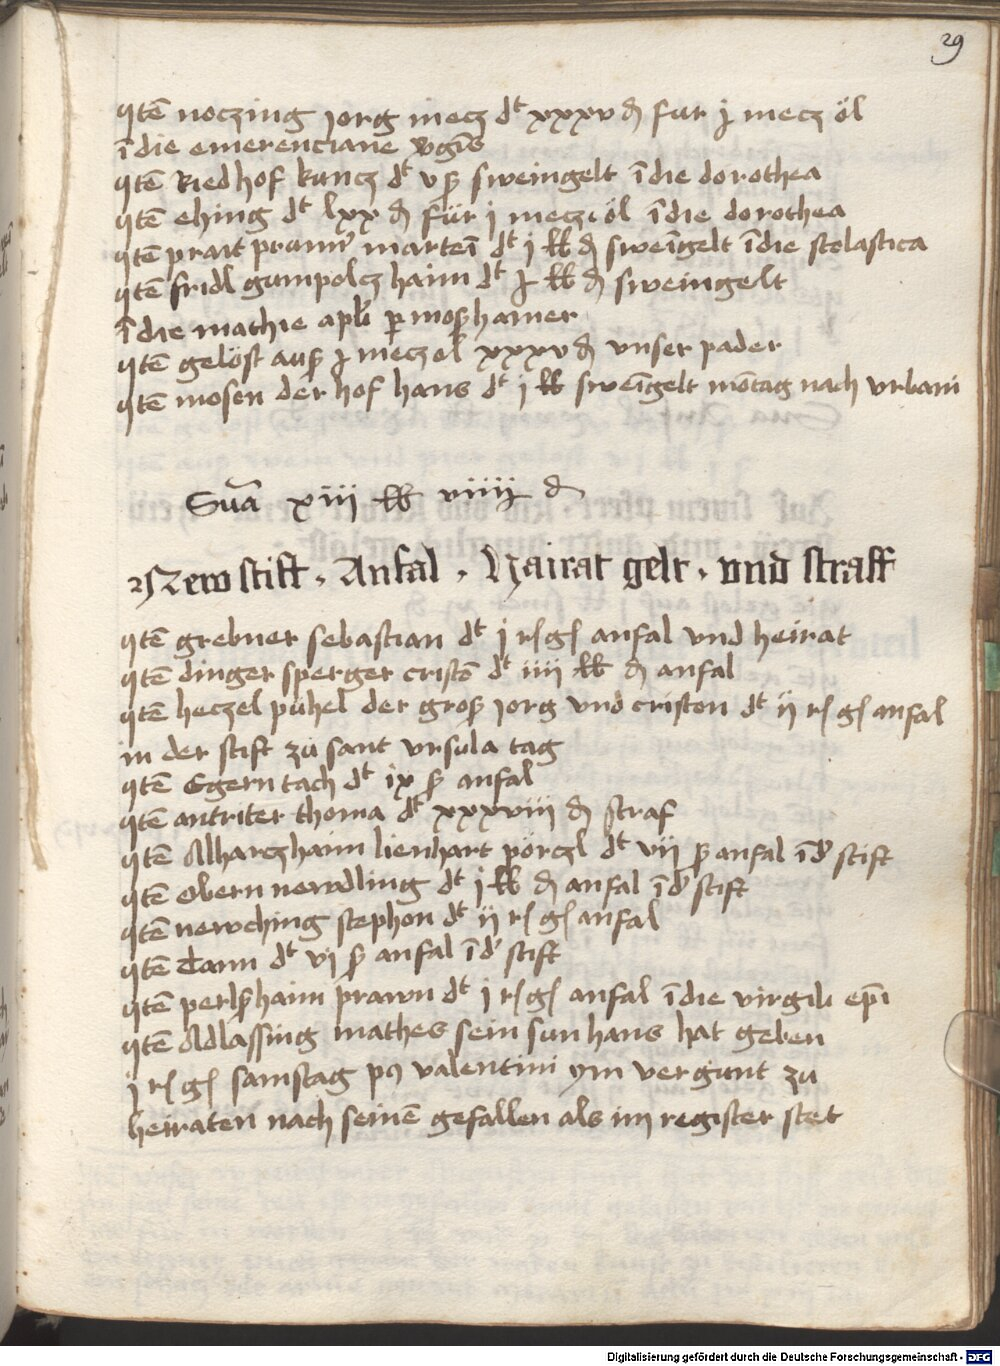 29
Itē noczing jorg mecz dt xxxv ₰ fur j mecz öl
ī die emerenciane vgīs
Itē Riedhof kuncz dt vß sweingelt ī die dorothea
Itē ehing dt lxx ₰ für j mecz öl ī die dorothea
Itē prait prunn' marteī dt j lb ₰ sweīgelt ī die scolastica
Itē fridl gumpolczhaim dt j lb ₰ sweingelt
ī die mathie apli p moßhamer
Itē gelöst auß j mecz öl xxxv ₰ vnser pader
Itē mosen der hof hans dt j lb sweīgelt mōtag nach vrbani
Suā xiii lb viiij ₰
Newstift . Anfal . Hairat gelt . vnd straff
Itē grebner sebastian dt j r gl anfal vnd heirat
Itē dinger sperger cristō dt iiii lb ₰ anfal
Itē heczel puhel der groß jorg vnd criston dt ij r gl anfal
in der stift zu sant vrsula tag
Itē Egern tach dt ix ß anfal
Itē antriter thoma dt xxxviii ₰ straf
Itē Alharczhaim lienhart pörczl dt vij ß anfal ī d' stift
Itē Obern newdling dt j lb ₰ anfal ī d' stift
Itē newching stephon dt ij r gl anfal
Itē Tann dt vj ß anfal ī d' stift
Itē perlßhaim prawn dt j r gl anfal ī die virgili epī
Itē Adlassing mathes sein sun hans hat geben
j r gl samstag p9 valentini ym vergunt zu
heiraten nach seinē gefallen als im register stet
Digitalisierung gefördert durch die Deutsche Forschungsgemeinschaft - DFG